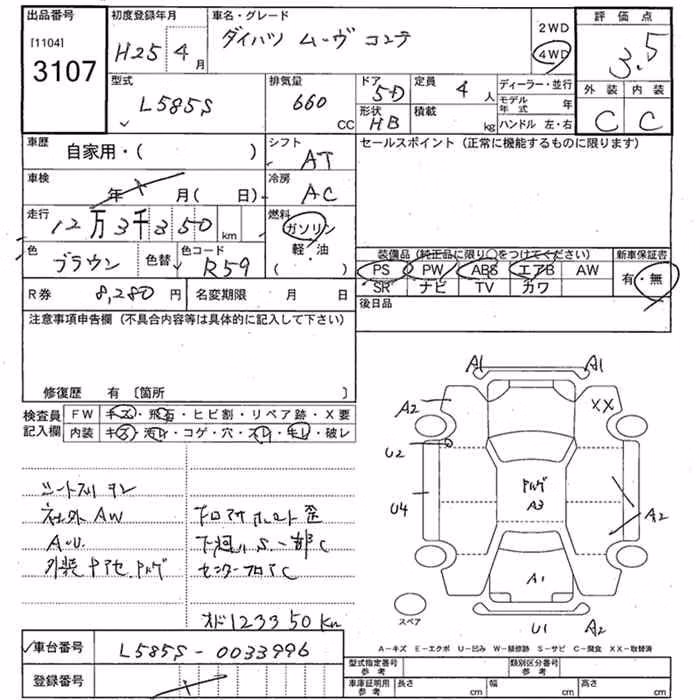 出品番号 初度登録年月 車名・グレード 評価点
[1104] 3107 H25年 4月 ダイハツ ムーヴ コンテ 2WD 4WD 3.5
型式 L585S 排気量 660 CC ドア 5D 定員 4人 ディーラー・並行 外装 内装
形状 HB 積載 kg モデル年式 年 ハンドル 左・右 C C
車歴 自家用・( ) シフト AT セールスポイント (正常に機能するものに限ります)
車検 年 月( 日) 冷房 AC
走行 12万3千350km 燃料 ガソリン 軽・油 ( )
色 ブラウン 色替 色コード R59 装備品 (純正品に限り○をつけてください) 新車保証書
PS PW ABS エアB AW 有・無
SR ナビ TV カワ
R券 8,280円 名変期限 月 日 後日品
注意事項申告欄 (不具合内容等は具体的に記入して下さい)
修復歴 有 [箇所 ]
検査員記入欄 FW キズ・飛石・ヒビ割・リペア跡・X要
内装 キズ・汚レ・コゲ・穴・スレ・キレ・破レ
A1 A1
A2 XX
U2
U4 A3 A2
A1
スペア U1 A2
シートスリ キレ
社外AW
A・U
下廻り S.一部C
センターフロアC
オド123350Km
A-キズ E-エクボ U-凹み W-補修跡 S-サビ C-腐食 XX-取替済
車台番号 L585S-0033996 型式指定番号 参考 類別区分番号 参考
登録番号 車庫証明用 参考 長さ cm 幅 cm 高さ cm